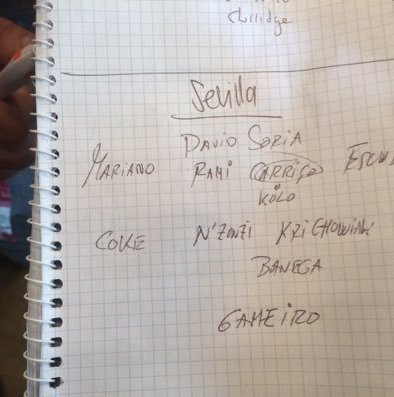 Sevilla
DAVID SORIA
MARIANO RAMI CARRIÇO ESCU
KOLO
COKE N'ZONZI KRICHOWIAK
BANEGA
GAMEIRO